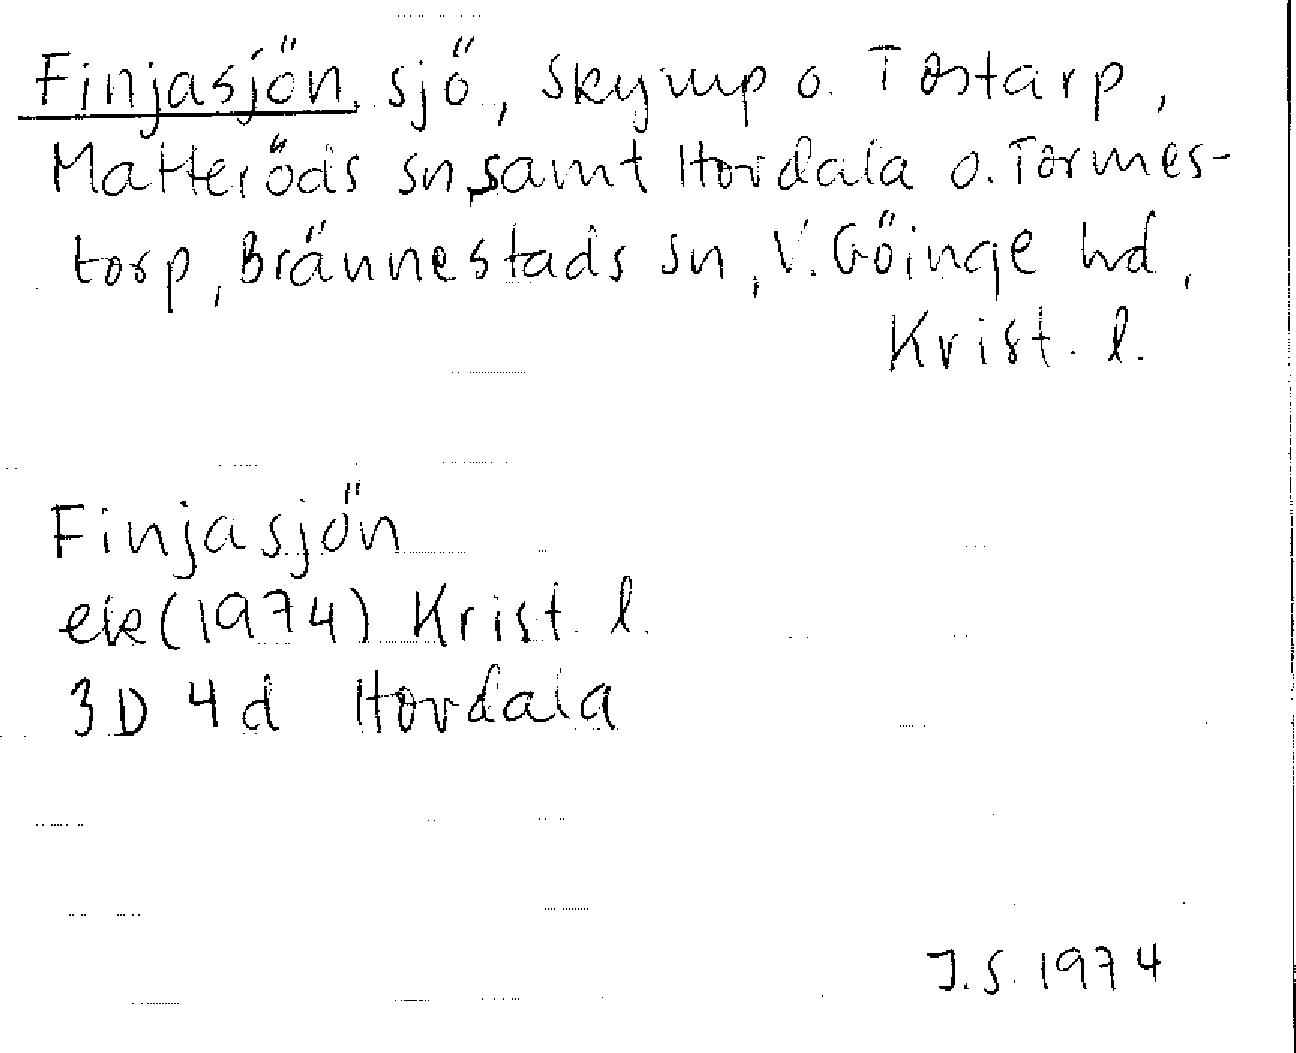 Finjasjön, sjö, Skyrup o. Tostarp,
Matteröds sn samt Hovdala o. Tormes-
torp, Brännestads sn, V. Göinge hd,
Krist. l.
Finjasjön
ek (1974) Krist. l.
3D 4d Hovdala
J.S. 1974